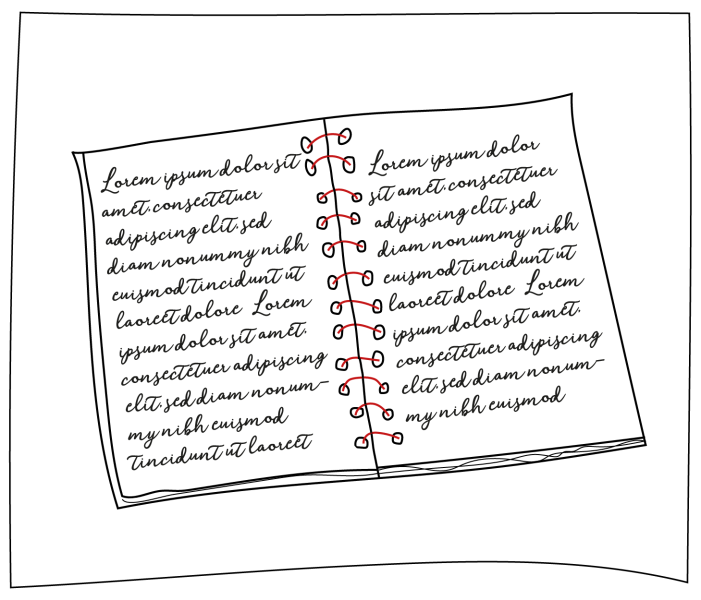 Lorem ipsum dolor sit
amet, consectetuer
adipiscing elit, sed
diam nonummy nibh
euismod tincidunt ut
laoreet dolore Lorem
ipsum dolor sit amet,
consectetuer adipiscing
elit, sed diam nonum-
my nibh euismod
tincidunt ut laoreet
Lorem ipsum dolor
sit amet, consectetuer
adipiscing elit, sed
diam nonummy nibh
euismod tincidunt ut
laoreet dolore Lorem
ipsum dolor sit amet,
consectetuer adipiscing
elit, sed diam nonum-
my nibh euismod